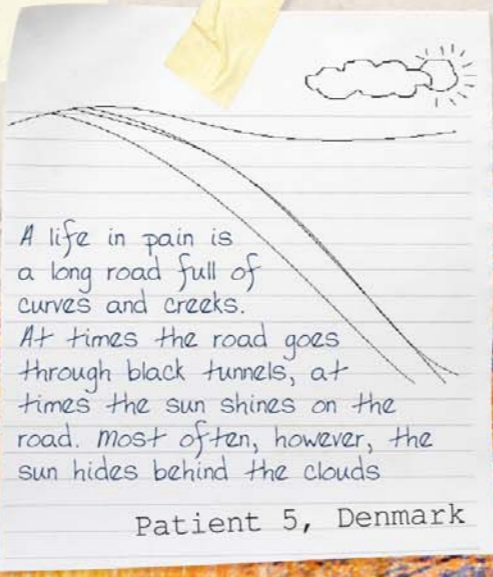 A life in pain is
a long road full of
curves and creeks.
At times the road goes
through black tunnels, at
times the sun shines on the
road. Most often, however, the
sun hides behind the clouds
Patient 5, Denmark